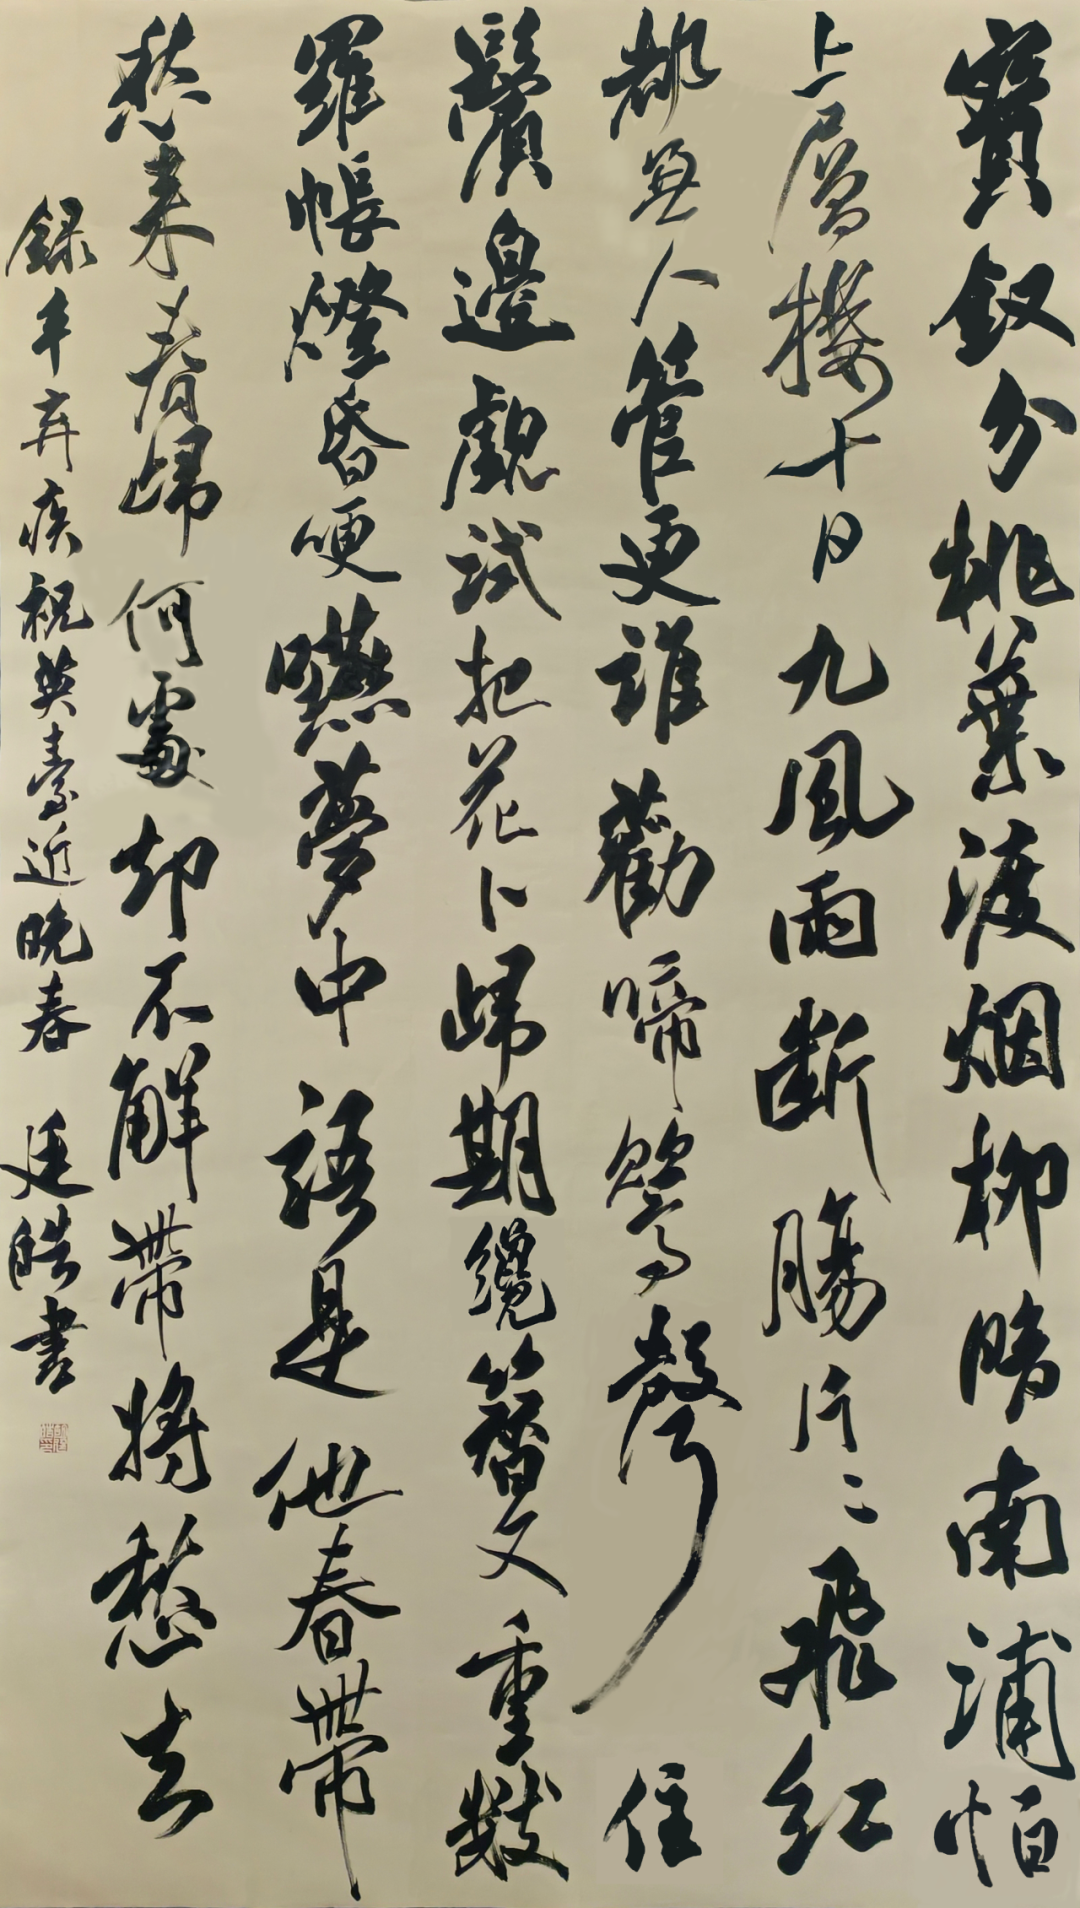 寶釵分桃葉渡烟柳暗南浦怕
上層樓十日九風雨斷腸片〻飛紅
都無人管更誰勸啼鶯聲住
鬢邊覷試把花卜歸期纔簪又重數
羅帳燈昏哽嚥夢中語是他春帶
愁來春歸何處却不解帶將愁去
錄辛弃疾祝英臺近晚春 廷皓書